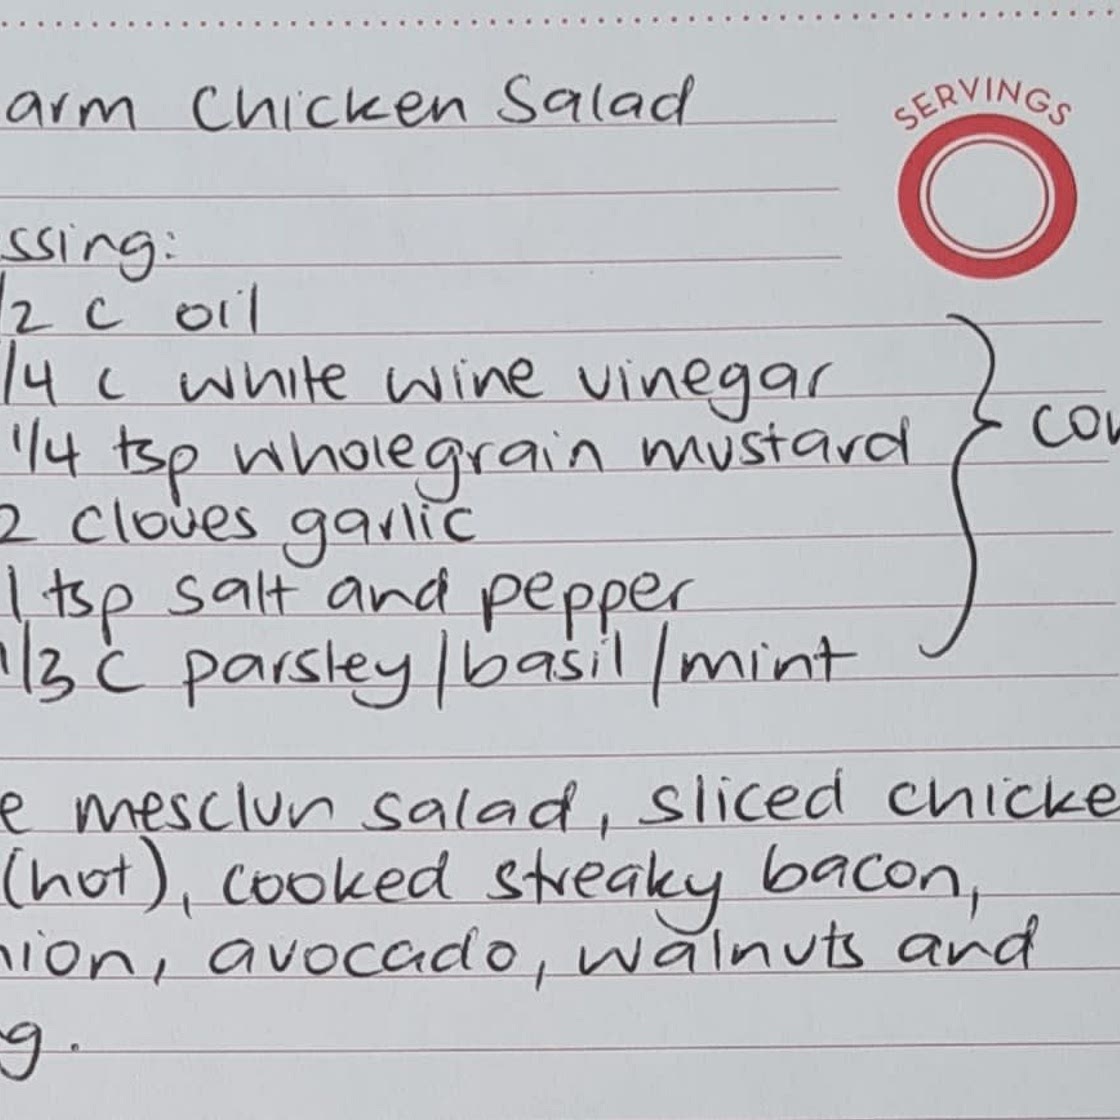 arm Chicken Salad
SERVINGS
ssing:
/2 c oil
/4 c white wine vinegar
1/4 tsp wholegrain mustard
2 cloves garlic
1 tsp salt and pepper
1/3 c parsley/basil/mint
e mesclun salad, sliced chicke
(hot), cooked streaky bacon,
nion, avocado, walnuts and
g.